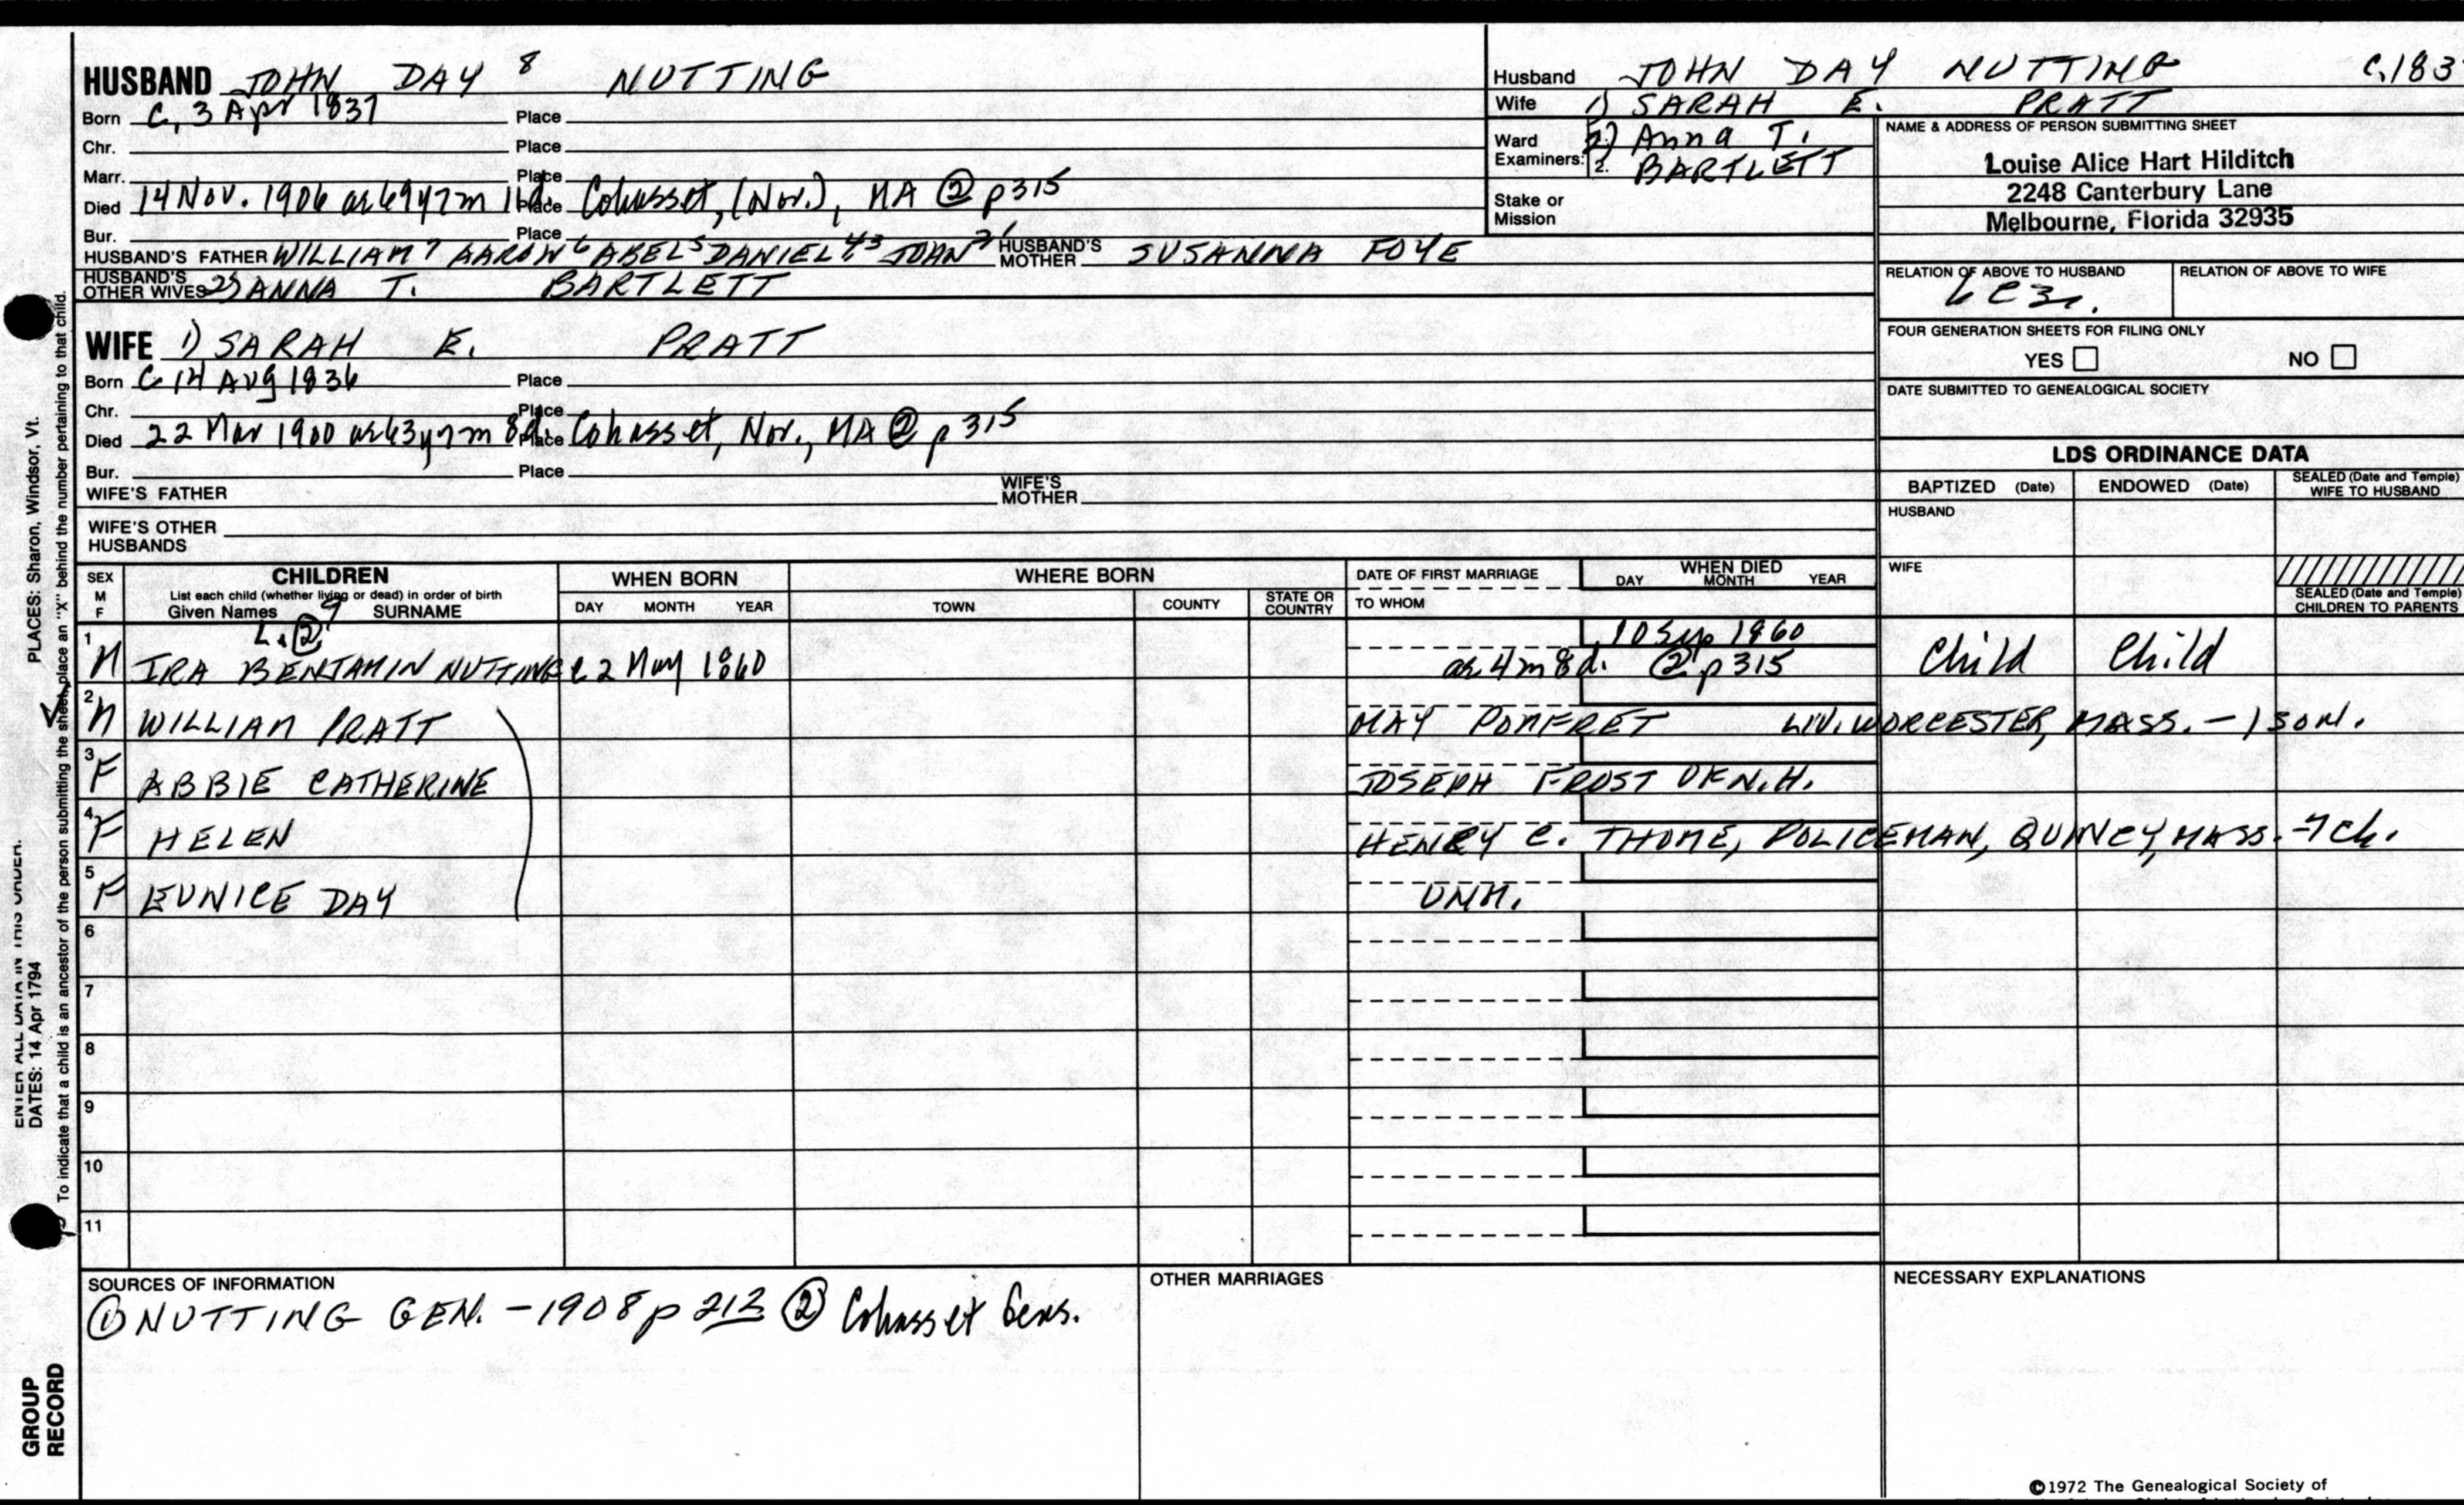 HUSBAND JOHN DAY 8 NUTTING
Born C, 3 Apr 1837 Place
Chr. Place
Marr. Place
Died 14 Nov. 1906 ae 69y 7m 11d. Place Cohasset, (Nor.), MA @ p315
Bur. Place
HUSBAND'S FATHER WILLIAM 7 AARON 6 ABEL 5 DANIEL 4,3 JOHN 2,1 HUSBAND'S MOTHER SUSANNA FOYE
HUSBAND'S OTHER WIVES 2) ANNA T. BARTLETT
WIFE 1) SARAH E. PRATT
Born C 14 Aug 1836 Place
Chr. Place
Died 22 Mar 1900 ae 63y 7m 8d. Place Cohasset, Nor., MA @ p 315
Bur. Place
WIFE'S FATHER WIFE'S MOTHER
WIFE'S OTHER HUSBANDS
Husband JOHN DAY NUTTING C.183
Wife 1) SARAH E. PRATT
Ward 2) Anna T.
Examiners: 2. BARTLETT
Stake or Mission
NAME & ADDRESS OF PERSON SUBMITTING SHEET
Louise Alice Hart Hilditch
2248 Canterbury Lane
Melbourne, Florida 32935
RELATION OF ABOVE TO HUSBAND RELATION OF ABOVE TO WIFE
FOUR GENERATION SHEETS FOR FILING ONLY
YES NO
DATE SUBMITTED TO GENEALOGICAL SOCIETY
LDS ORDINANCE DATA
BAPTIZED (Date) ENDOWED (Date) SEALED (Date and Temple) WIFE TO HUSBAND
HUSBAND
WIFE
SEALED (Date and Temple) CHILDREN TO PARENTS
SEX M F CHILDREN WHEN BORN WHERE BORN DATE OF FIRST MARRIAGE WHEN DIED
List each child (whether living or dead) in order of birth DAY MONTH YEAR
Given Names 9 SURNAME DAY MONTH YEAR TOWN COUNTY STATE OR COUNTRY TO WHOM
L. @ 10 Sep 1860
1 M IRA BENJAMIN NUTTING C 2 May 1860 ae 4m 8d. @ p 315 Child Child
2 M WILLIAM PRATT MAY POMFRET LIV. WORCESTER, MASS. - 1 SON.
3 F ABBIE CATHERINE JOSEPH FROST OF N.H.
4 F HELEN HENRY C. THOME, POLICEMAN, QUINCY, MASS. - 7 ch.
5 F EUNICE DAY UNM.
6
7
8
9
10
11
SOURCES OF INFORMATION OTHER MARRIAGES NECESSARY EXPLANATIONS
① NUTTING GEN. - 1908 p 213 ② Cohasset Gens.
©1972 The Genealogical Society of
PLACES: Sharon, Windsor, Vt.
ENTER ALL DATA IN THIS ORDER:
DATES: 14 Apr 1794
To indicate that a child is an ancestor of the person submitting the sheet, place an "X" behind the number pertaining to that child.
GROUP
RECORD